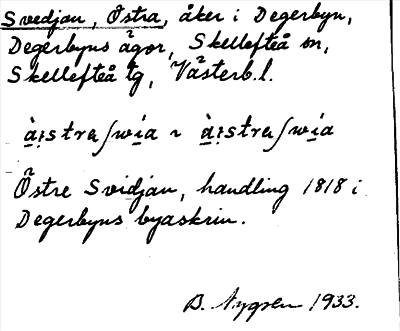 Svedjan, Östra, åker i Degerbyn,
Degerbyns ägor, Skellefteå sn,
Skellefteå tg, Västerb.l.
Östre Svidjan, handling 1818 i
Degerbyns byaskrin.
B. Nygren 1933.